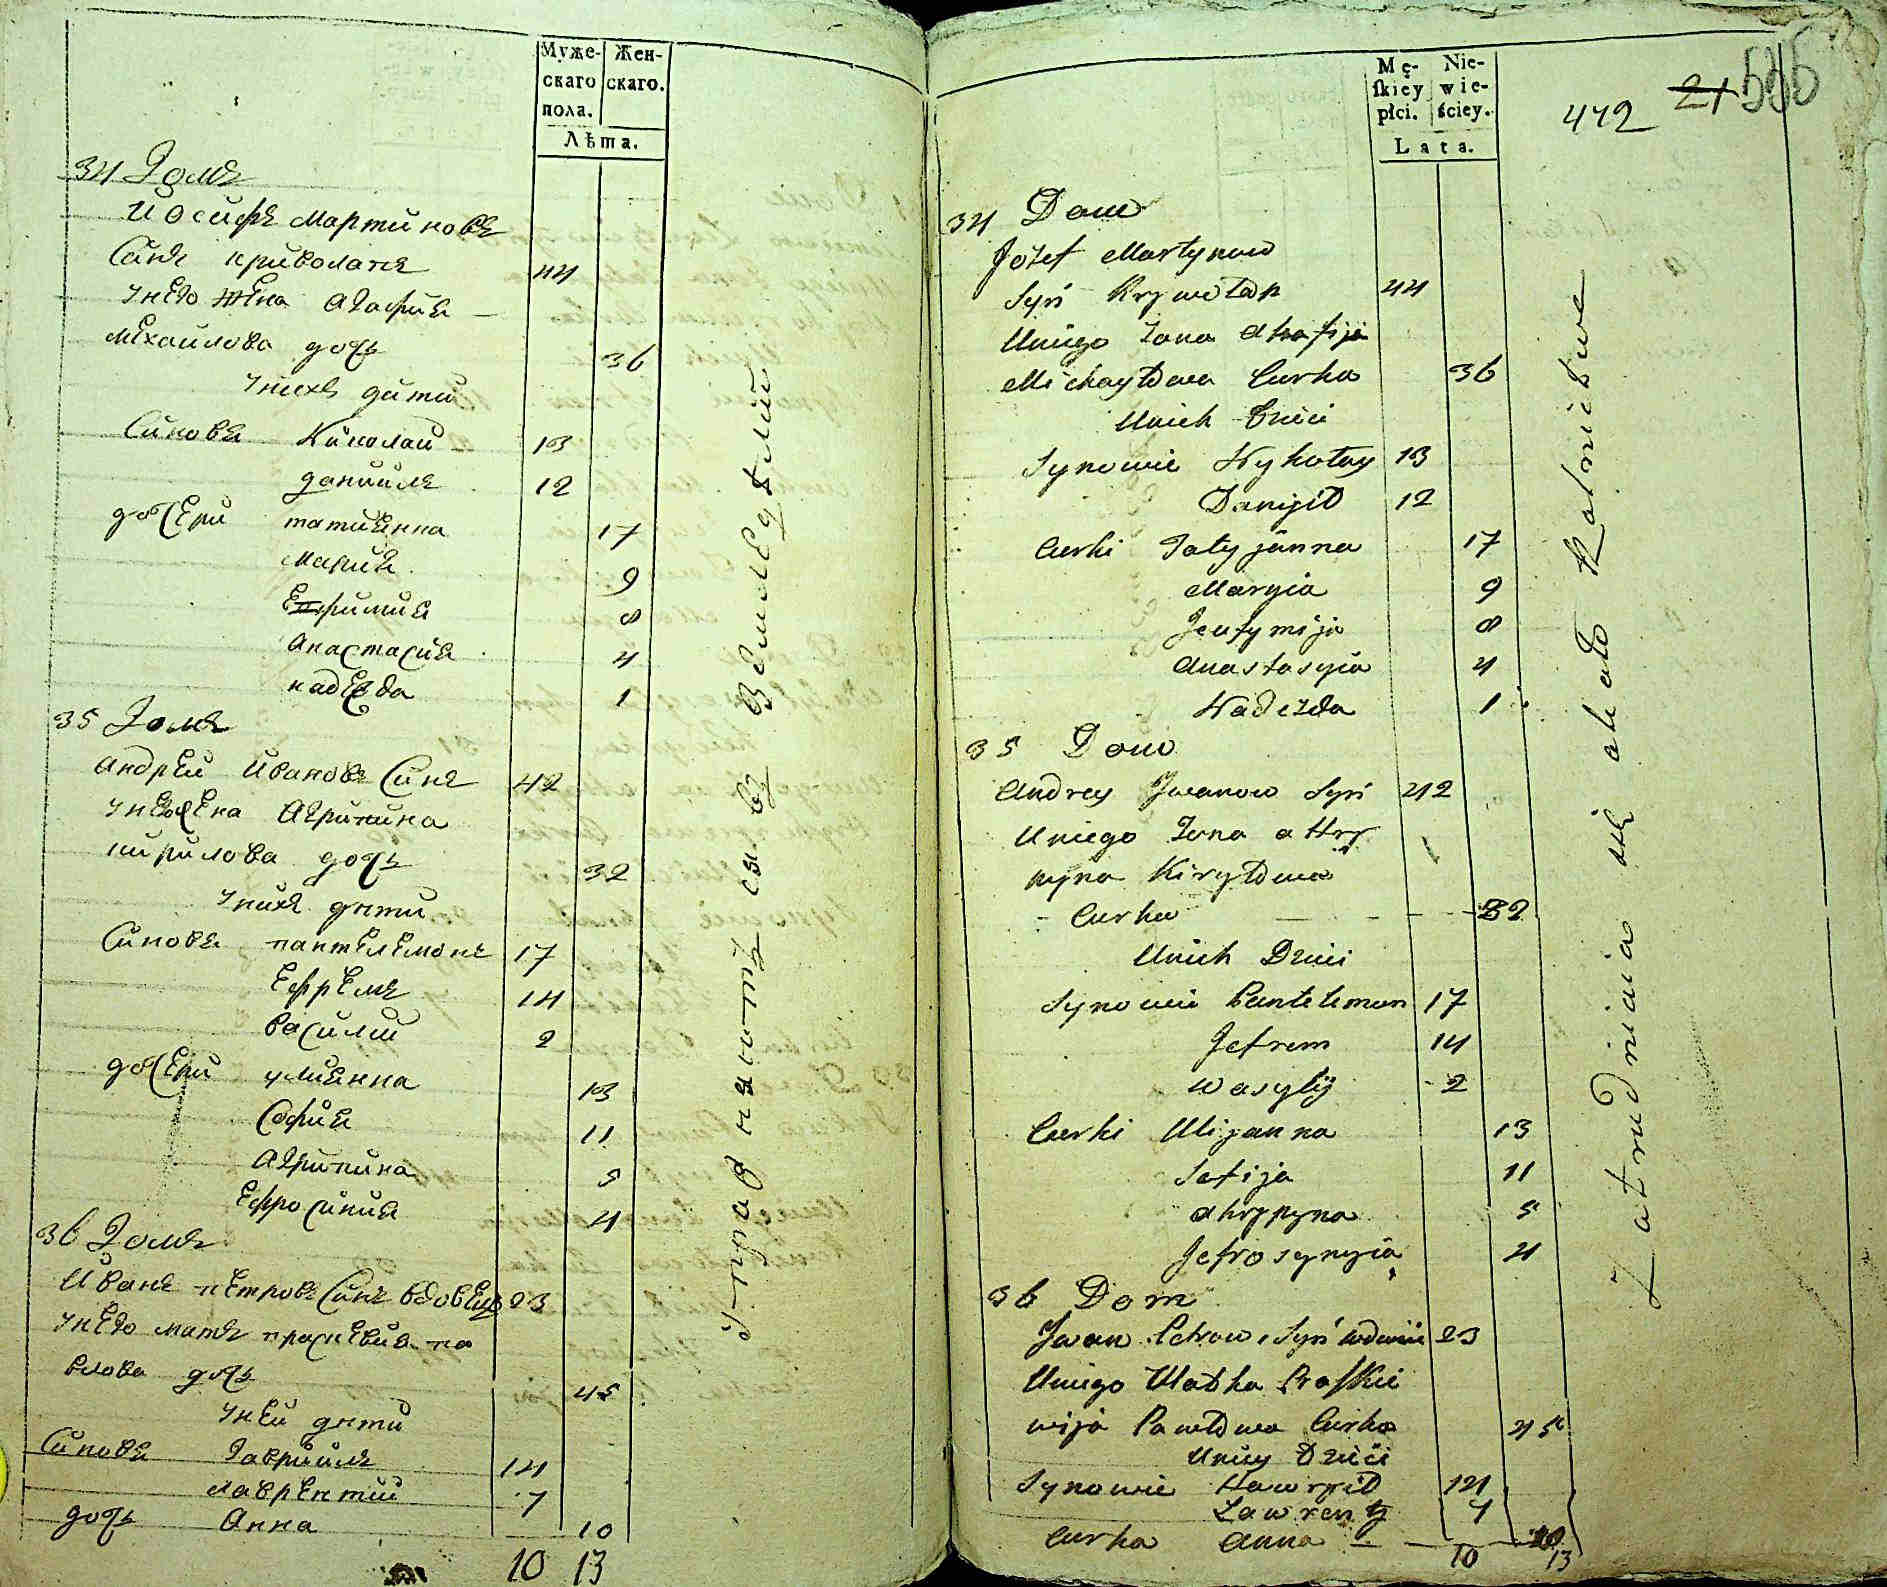 Муже-
скаго
пола.
Жен-
скаго.
Лѣта.
34 Домъ
Иосифъ Мартиновъ
Синъ Криволапъ 44
Унего жена Агафия
Михаилова дочъ 36
Унихъ дити
Синовя Николай 13
данниилъ 12
дочери татиянна 17
Мария 9
Ефимия 8
Анастасия 4
надежда 1
35 Домъ
Андрей Ивановъ Синъ 42
Унего жена Агрипина
кирилова дочъ 32
Унихъ дѣти
Синовя пантелемонъ 17
Ефремъ 14
василий 2
дочери улиянна 13
София 11
Агрипина 5
Ефросиния 4
36 Домъ
Иванъ петровъ Синъ вдовецъ 23
Унего матъ праскевия па
влова дочъ 45
Уней дѣти
Синовя Гавриилъ 14
лаврентий 7
дочъ Анна 10
10 13
Управняютъ ся въ Земледѣлии
Mę-
skiey
płci.
Nie-
wie-
ściey.
Lata.
472 21 555
34 Dom
Jozef Martynow
Syn Krywołap 44
Uniego Zona Ahafija
Michayłowa Curka 36
Unich Dzieci
Synowie Nykołay 13
Daniyił 12
Curki Tatyjanna 17
Maryia 9
Jeufymija 8
Anastasyia 4
Nadezda 1
35 Dom
Andrey Jwanow Syn 42
Uniego Zona aHry
pyna Kiryłowa
Curka 32
Unich Dzieci
Synowie Pantelemon 17
Jefrem 14
Wasylij 2
Curki Ulijanna 13
Sofija 11
ahrypyna 5
Jefrosynyia 4
36 Dom
Jwan Petrow Syn wdowiec 23
Uniego Matka Praskie
wija Pawłowa Curka 45
Uniey Dzieci
Synowie Hawryił 14
Ławrenty 7
Curka Anna 10
10 13
Zatrudniaia się około Rolnictwa